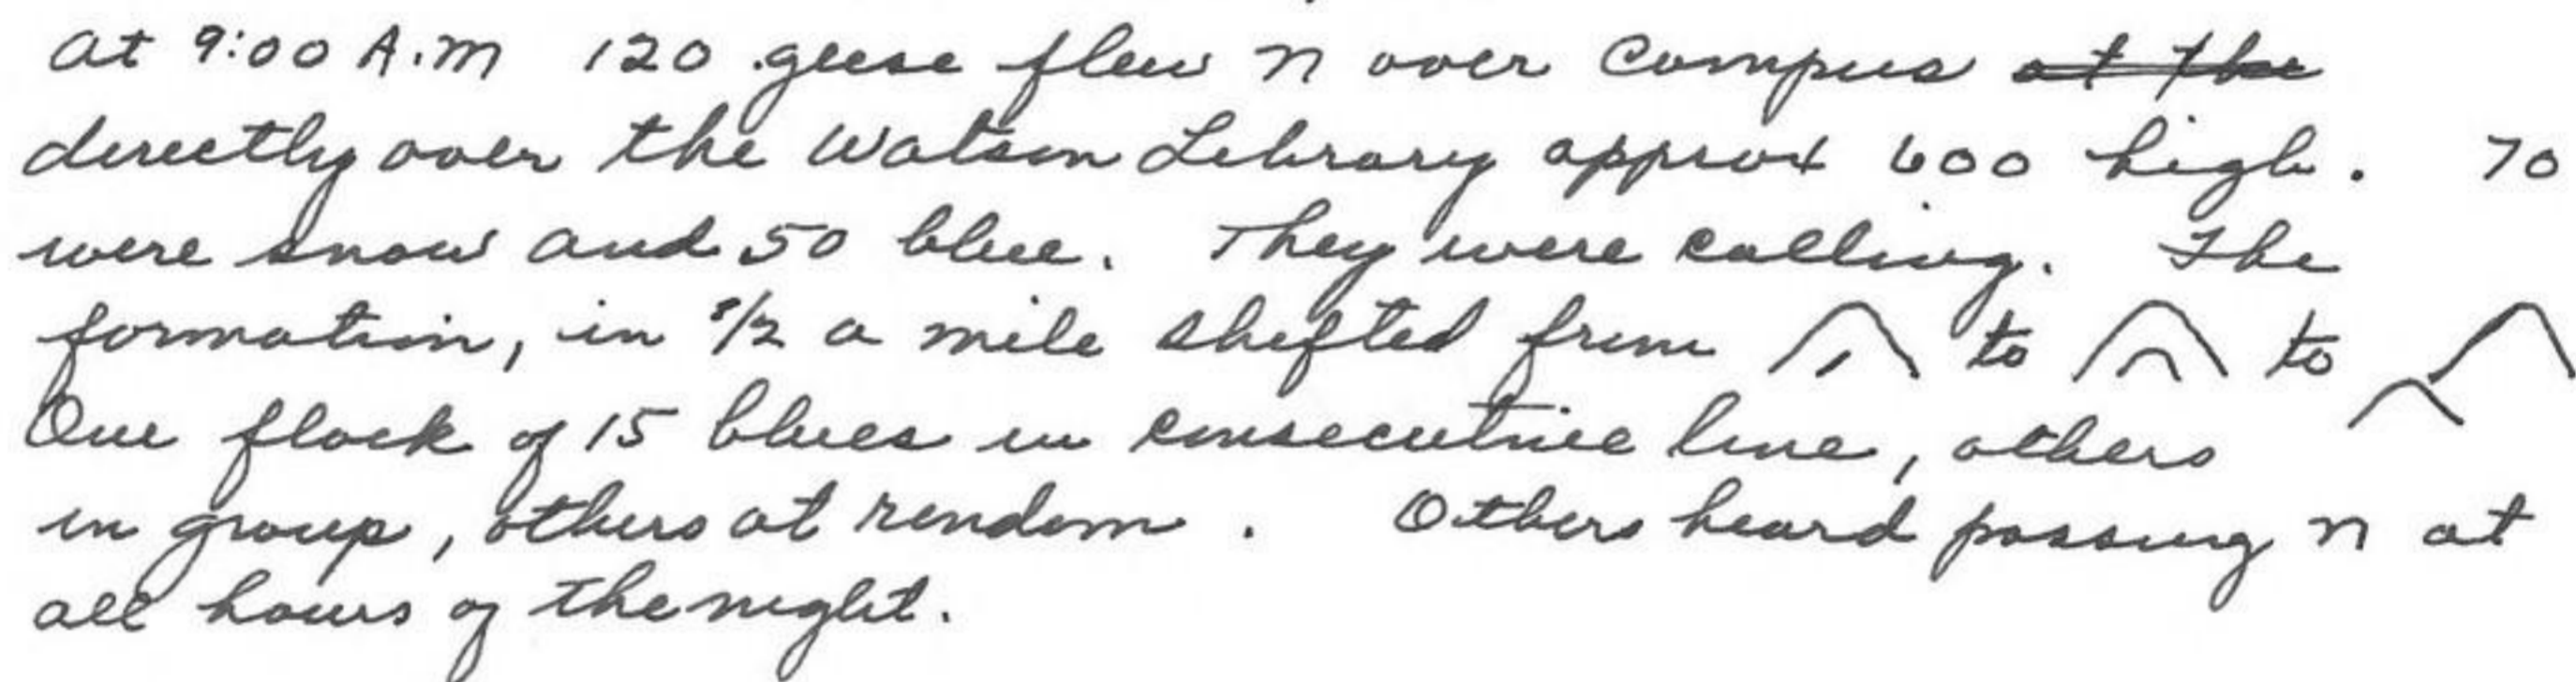 at 9:00 A.M 120 geese flew N over Campus at the
directly over the Watson Library approx 600 high. 70
were snow and 50 blue. They were calling. The
formation, in 1/2 a mile shifted from to to
One flock of 15 blues in consecutive line, others
in group, others at random. Others heard passing N at
all hours of the night.